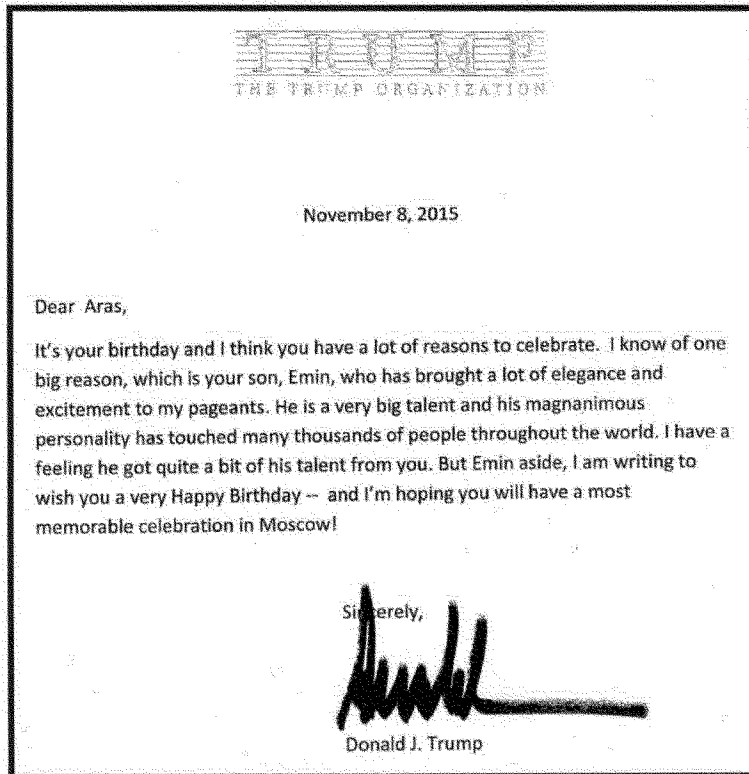 TRUMP
THE TRUMP ORGANIZATION
November 8, 2015
Dear Aras,
It's your birthday and I think you have a lot of reasons to celebrate. I know of one
big reason, which is your son, Emin, who has brought a lot of elegance and
excitement to my pageants. He is a very big talent and his magnanimous
personality has touched many thousands of people throughout the world. I have a
feeling he got quite a bit of his talent from you. But Emin aside, I am writing to
wish you a very Happy Birthday -- and I'm hoping you will have a most
memorable celebration in Moscow!
Sincerely,
Donald J. Trump